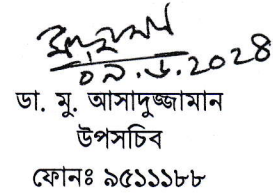 ০৯.৬.2024
ডা. মু. আসাদুজ্জামান
উপসচিব
ফোনঃ ৯৫১১১৮৮